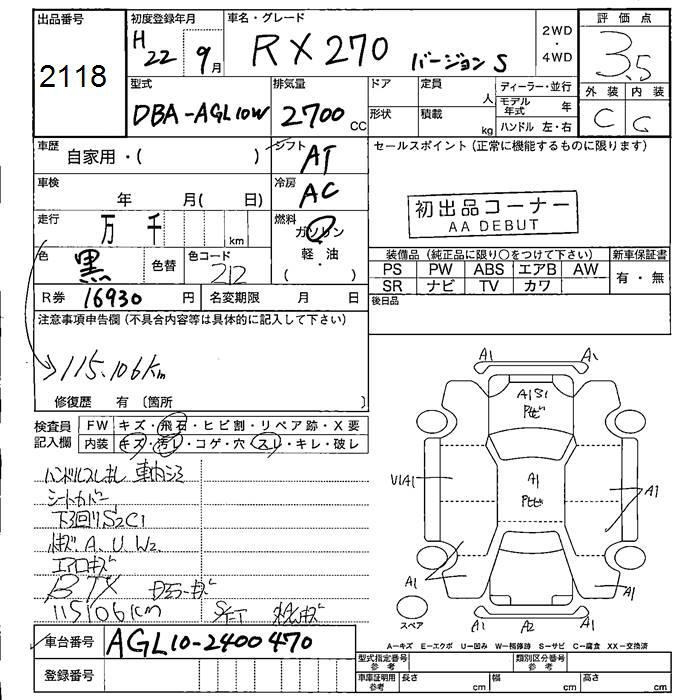 出品番号
2118
初度登録年月
H 22 9月
車名・グレード
RX270 バージョンS
2WD
・
4WD
評価点
3.5
外装 内装
C C
型式
DBA-AGL10W
排気量
2700 CC
ドア
定員
人
形状
積載
kg
ディーラー・並行
モデル年式 年
ハンドル 左・右
車歴
自家用・( )
シフト
AT
車検
年 月( 日)
冷房
AC
走行
万 千 km
燃料
ガソリン
・
軽・油
( )
色
黒
色替
色コード
212
R券 16930 円
名変期限 月 日
セールスポイント(正常に機能するものに限ります)
初出品コーナー
AA DEBUT
装備品(純正品に限り○をつけて下さい)
新車保証書
PS PW ABS エアB AW
SR ナビ TV カワ
有・無
後日品
注意事項申告欄(不具合内容等は具体的に記入して下さい)
115.106km
修復歴 有〔箇所 〕
検査員記入欄
FW キズ・飛石・ヒビ割・リペア跡・X要
内装 キズ・汚れ・コゲ・穴・スレ・キレ・破レ
ハンドルスレ 車内シミ
シートカバー
下回りS2C1
A. U. W2
エアロキズ
115106km
車台番号 AGL10-2400470
登録番号
A1 A1
A1B1
トビ
U1A1
A1
トビ
A1
A1
A1
A1 A2 A1
スペア
A−キズ E−エクボ U−凹み W−補修跡 S−サビ C−腐食 XX−交換済
型式指定番号 参考
類別区分番号 参考
車庫証明用 参考
長さ cm
幅 cm
高さ cm